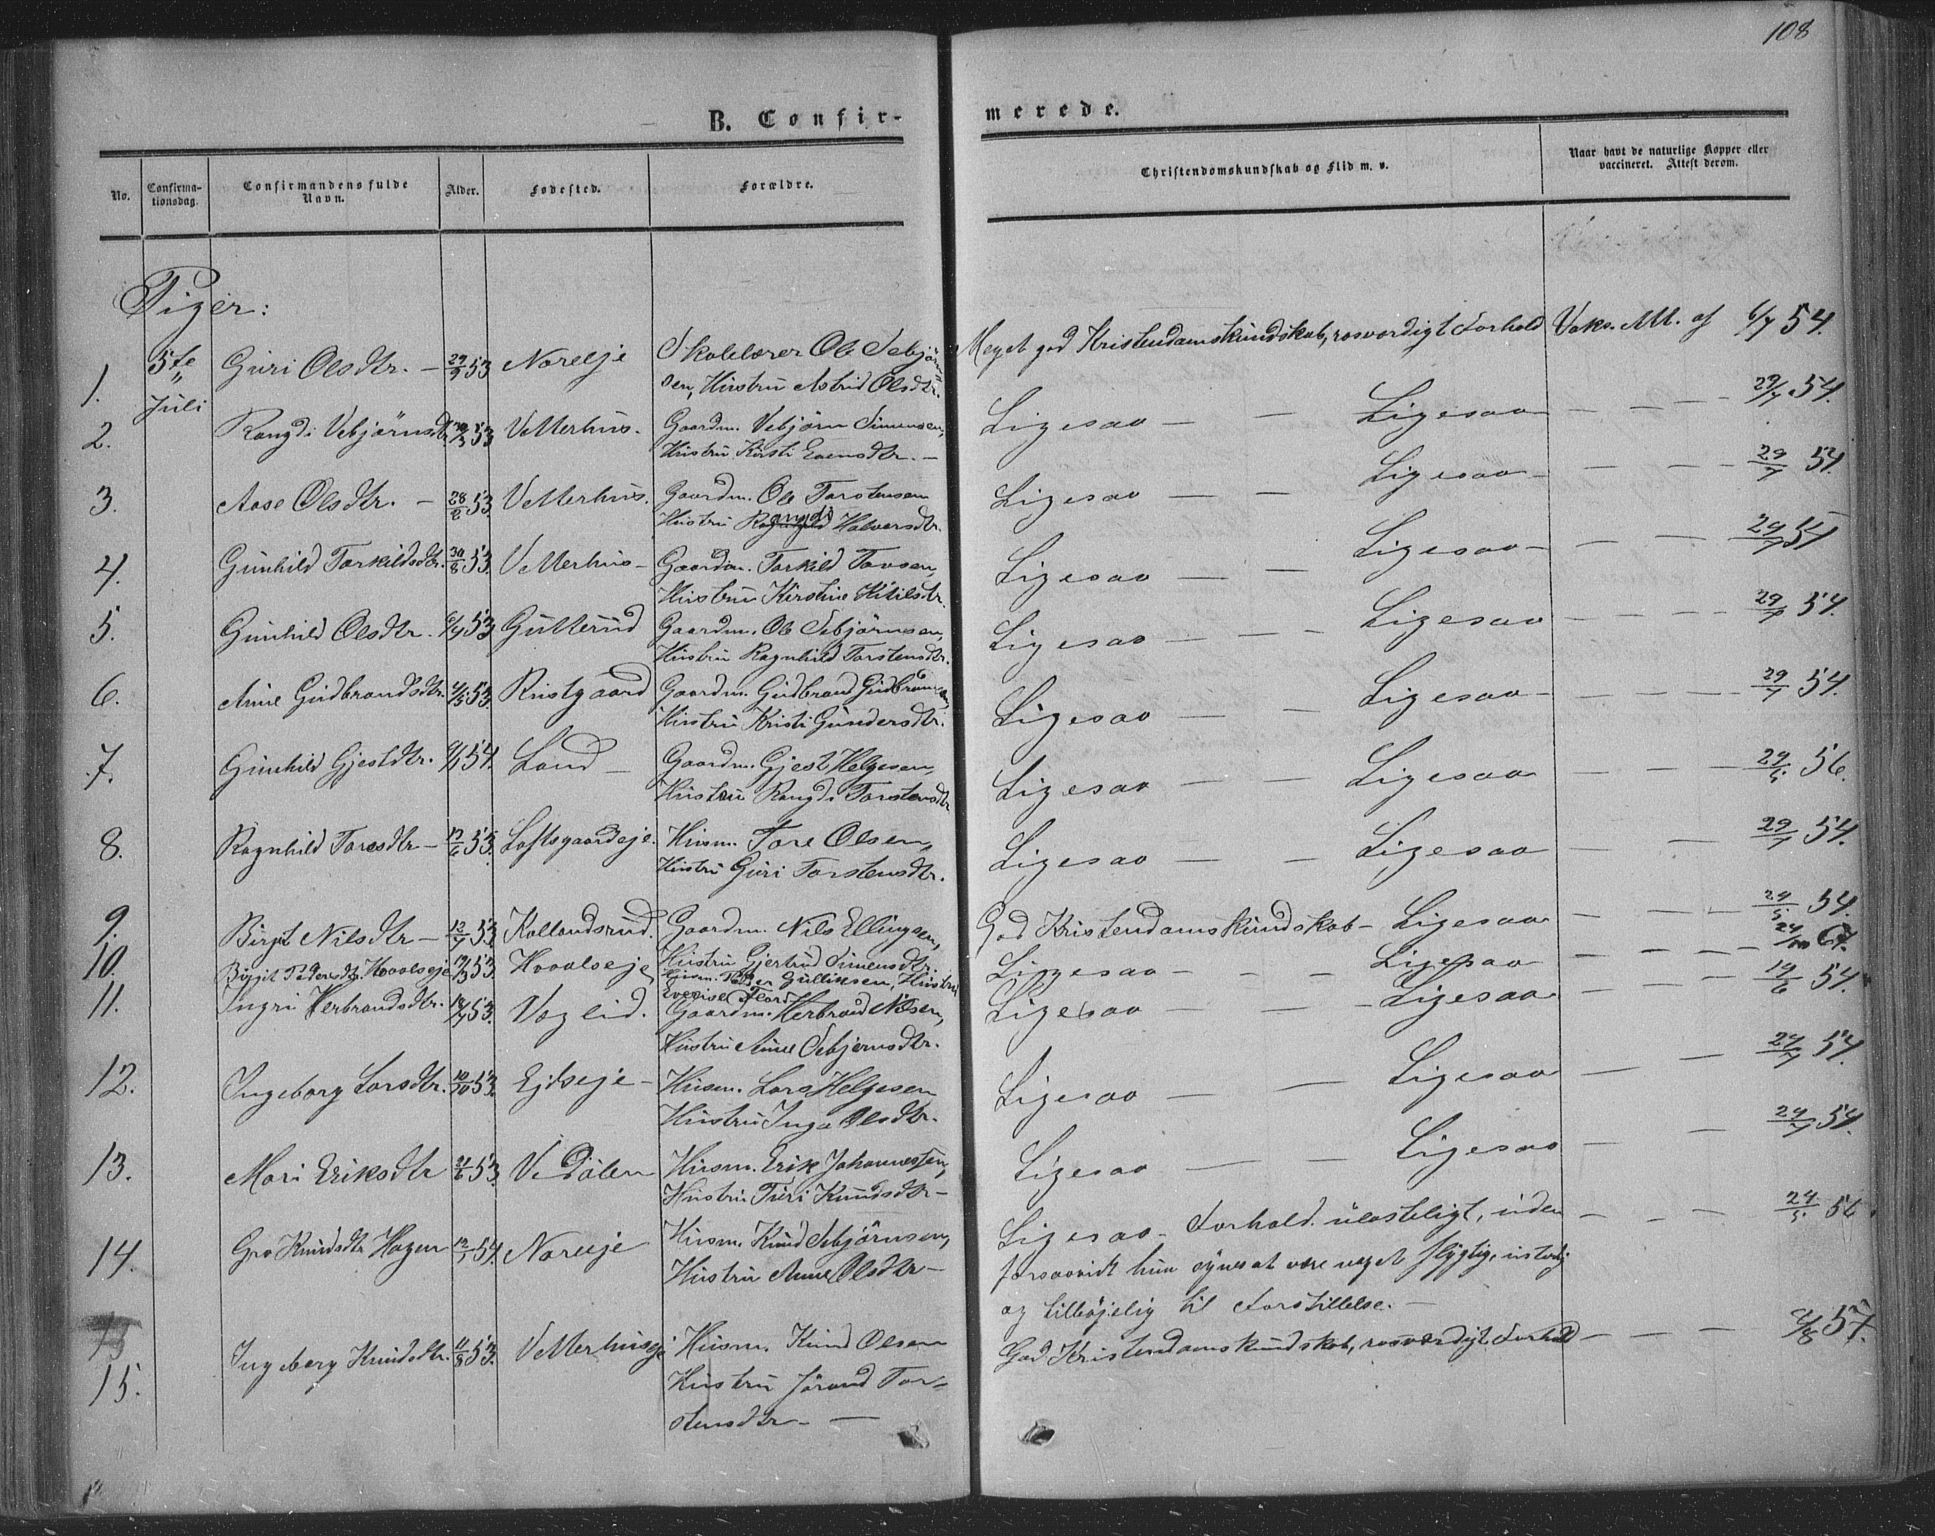 108
B. Confir-
merede.
No.
Confirma-
tionsdag.
Confirmandens fulde
Navn.
Alder.
Fødested.
Forældre.
Christendomskundskab og Flid m. v.
Naar havt de naturlige Kopper eller
vaccineret. Attest derom.
Piger:
1. 5te Juli Guri Olsdtr. — 29/9 53 Noreeje Skolelærer Ole Sebjörn-
sen, Hustru Astrid Olsdtr. Meget god Kristendomskundskab, rosværdigt Forhold Vaks. Att. af 6/7 54.
2. Rangdi Vebjörnsdtr. 53 Vetterhus. Gaardm. Vebjörn Simensen,
Hustru Kirsti Evensdtr. — Ligesaa — — Ligesaa — — — 29/7 54.
3. Aase Olsdtr. — 28/8 53. Vetterhus. Gaardm. Ole Torstensen
Hustru Rangdi Halvorsdtr. Ligesaa — — Ligesaa — — — 29/7 54.
4. Gunhild Torkildsdtr. 30/8 53. Vetterhus — Gaardm. Torkild Tovsen,
Hustru Kirstine Kittilsdtr. Ligesaa — — Ligesaa — — — 29/7 54
5. Gunhild Olsdtr. 53 Gutterud Gaardm. Ole Sebjörnsen,
Hustru Ragnhild Torstensdtr. Ligesaa — — Ligesaa — — — 29/7 54.
6. Anne Gudbrandsdtr. 53. Rustgaard Gaardm. Gudbrand Gudbransen,
Hustru Kristi Gundersdtr. Ligesaa — — Ligesaa — — — 29/7 54.
7. Gunhild Gjestdtr. 54. Land — Gaardm. Gjest Helgesen,
Hustru Rangdi Torstensdtr Ligesaa — — Ligesaa — — — 56.
8. Ragnhild Toresdtr — 53. Loftsgaardeje. Husm. Tore Olsen,
Hustru Guri Torstensdtr. Ligesaa — — Ligesaa — — 29/7 54.
9. Birgit Nilsdtr — 12/7 53. Kollandsrud. Gaardm. Nils Ellingsen,
Hustru Gjertrud Simensdtr. God Kristendomskundskab — Ligesaa — — — 54.
10. Birgit Pedersdtr. Hovalseje 53 Hovalseje Husm. Peder Gulliksen, Hustru
Ligesaa — — — Ligesaa — — —
11. Ingri Herbrandsdtr. 53. Vaglid. Gaardm. Herbrand Nilsen,
Hustru Anne Sebjørnsdtr. Ligesaa — — Ligesaa — — — 19/6 54.
12. Ingeborg Larsdtr. 10/10 53. Ejdseje — Husm. Lars Helgesen
Hustru Inga Olsdtr. Ligesaa — — Ligesaa — — 54.
13. Mari Eriksdtr 53. Ve Dölen Husm. Erik Johannessen,
Hustru Turi Knudsdtr — Ligesaa — — Ligesaa — — 54.
14. Gro Knudsdtr Hagen 12/1 54. Noreeje Husm. Knud Sebjörnsen,
Hustru Anne Olsdtr — Ligesaa — Forhold ulasteligt, uden
forsaavidt hun synes at være meget flygtig, ustadig
og tilböjelig til Forstillelse. —
15.
15. Ingeborg Knudsdtr. 11/8 53. Vetterhuseje Husm. Knud Olsen
Hustru Jörand Tor-
stensdtr — — God Kristendomskundskab, rosværdigt Forhold — — — 57.